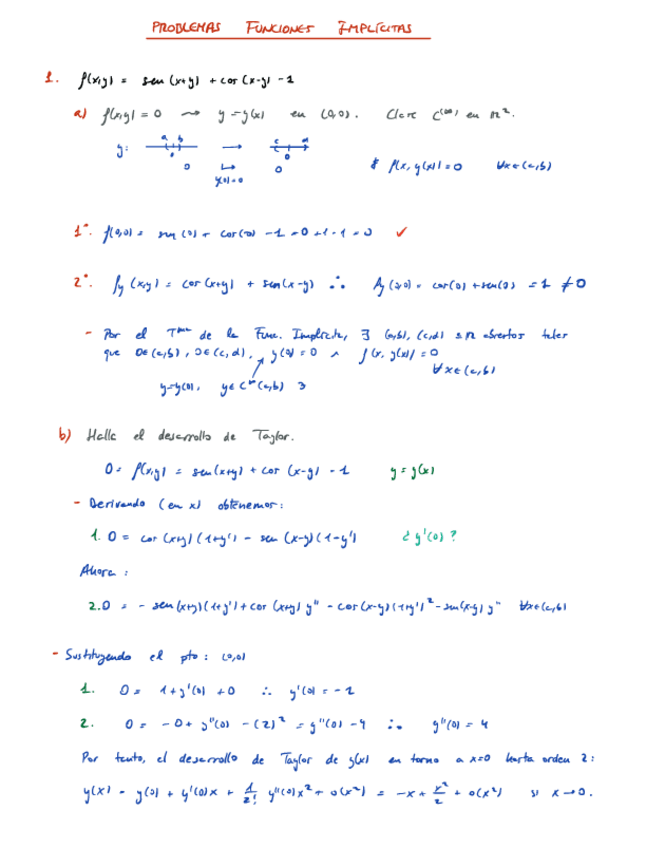 PROBLEMAS FUNCIONES IMPLÍCITAS
1. f(x,y) = sen (x+y) + cos (x-y) - 1
a) f(x,y) = 0 ⇝ y = y(x) en (0,0). Clase C^(∞) en ℝ².
y: a b → c d
0 ↦ 0
y(0)=0
f(x, y(x)) = 0 ∀x∈(a,b)
1°. f(0,0) = sen (0) + cos(0) - 1 = 0 + 1 - 1 = 0 ✓
2°. fy (x,y) = cos (x+y) + sen(x-y) ∴ fy(0,0) = cos(0) + sen(0) = 1 ≠ 0
- Por el Tma de la Func. Implícita, ∃ (a,b), (c,d) ⊆ ℝ abiertos tales
que 0∈(a,b), 0∈(c,d), y(0) = 0 ∧ f(x, y(x)) = 0
∀x∈(a,b)
y=y(x), y∈C^∞(a,b) ∋
b) Halla el desarrollo de Taylor.
0 = f(x,y) = sen(x+y) + cos (x-y) - 1 y = y(x)
- Derivando (en x) obtenemos:
1. 0 = cos (x+y) (1+y') - sen (x-y) (1-y') ¿ y'(0) ?
Ahora :
2. 0 = - sen (x+y) (1+y') + cos (x+y) y'' - cos (x-y) (1+y')² - sen(x-y) y'' ∀x∈(a,b)
- Sustituyendo el pto : (0,0)
1. 0 = 1 + y'(0) + 0 ∴ y'(0) = -1
2. 0 = -0 + y''(0) - (2)² = y''(0) - 4 ∴ y''(0) = 4
Por tanto, el desarrollo de Taylor de y(x) en torno a x=0 hasta orden 2:
y(x) = y(0) + y'(0)x + 1/2! y''(0)x² + o(x²) = -x + x²/2 + o(x²) si x→0.